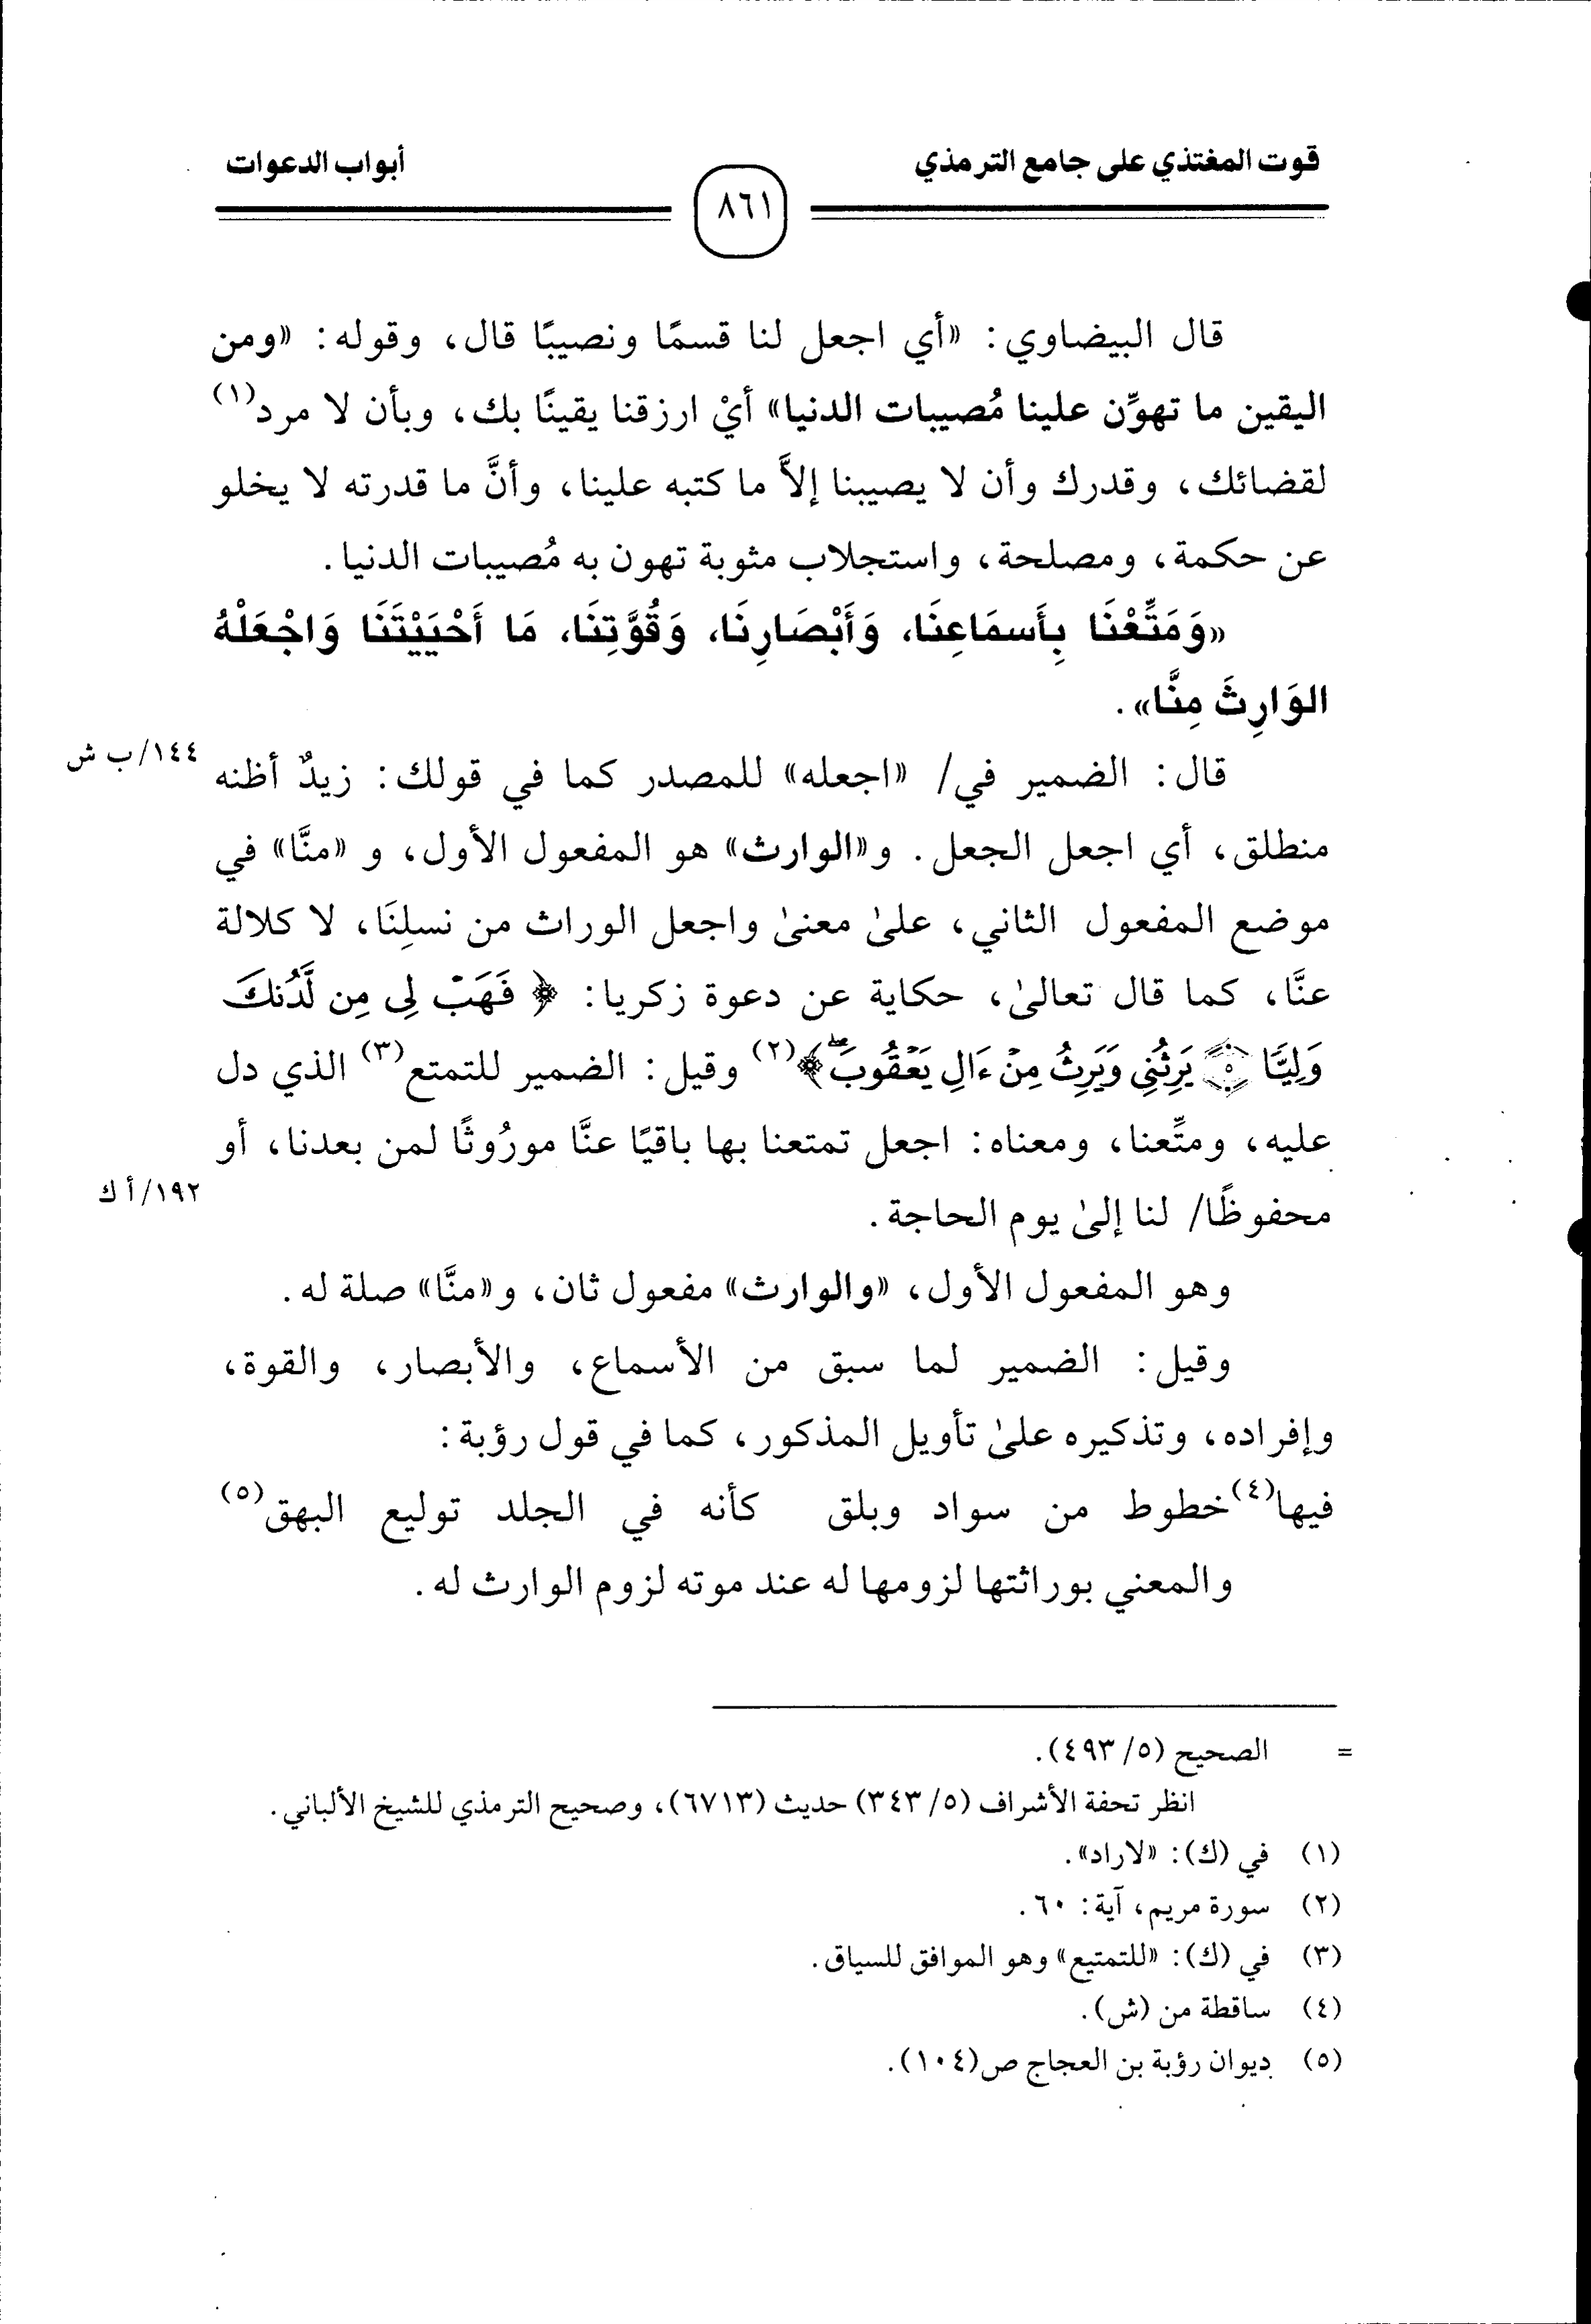 قوت المغتذي على جامع الترمذي
٨٦١
أبواب الدعوات
قال البيضاوي: «أي اجعل لنا قسمًا ونصيبًا قال، وقوله: «ومن
اليقين ما تهوِّن علينا مُصيبات الدنيا» أيْ ارزقنا يقينًا بك، وبأن لا مرد(١)
لقضائك، وقدرك وأن لا يصيبنا إلاَّ ما كتبه علينا، وأنَّ ما قدرته لا يخلو
عن حكمة، ومصلحة، واستجلاب مثوبة تهون به مُصيبات الدنيا.
«وَمَتِّعْنَا بِأَسمَاعِنَا، وَأَبْصَارِنَا، وَقُوَّتِنَا، مَا أَحْيَيْتَنَا وَاجْعَلْهُ
الوَارِثَ مِنَّا».
قال: الضمير في/ «اجعله» للمصدر كما في قولك: زيدٌ أظنه
١٤٤/ب ش
منطلق، أي اجعل الجعل. و«الوارث» هو المفعول الأول، و «منَّا» في
موضع المفعول الثاني، علىٰ معنىٰ واجعل الوراث من نسلِنَا، لا كلالة
عنَّا، كما قال تعالىٰ، حكاية عن دعوة زكريا: ﴿ فَهَبْ لِى مِن لَّدُنكَ
وَلِيًّا ۝٥ يَرِثُنِى وَيَرِثُ مِنْ ءَالِ يَعْقُوبَۖ﴾(٢) وقيل: الضمير للتمتع(٣) الذي دل
عليه، ومتِّعنا، ومعناه: اجعل تمتعنا بها باقيًا عنَّا مورُوثًا لمن بعدنا، أو
محفوظًا/ لنا إلىٰ يوم الحاجة.
١٩٢/أ ك
وهو المفعول الأول، «والوارث» مفعول ثان، و«منَّا» صلة له.
وقيل: الضمير لما سبق من الأسماع، والأبصار، والقوة،
وإفراده، وتذكيره علىٰ تأويل المذكور، كما في قول رؤبة:
فيها(٤)خطوط من سواد وبلق كأنه في الجلد توليع البهق(٥)
والمعني بوراثتها لزومها له عند موته لزوم الوارث له.
= الصحيح (٥/ ٤٩٣).
انظر تحفة الأشراف (٥/ ٣٤٣) حديث (٦٧١٣)، وصحيح الترمذي للشيخ الألباني.
(١) في (ك): «لاراد».
(٢) سورة مريم، آية: ٦٠.
(٣) في (ك): «للتمتيع» وهو الموافق للسياق.
(٤) ساقطة من (ش).
(٥) ديوان رؤبة بن العجاج ص(١٠٤).